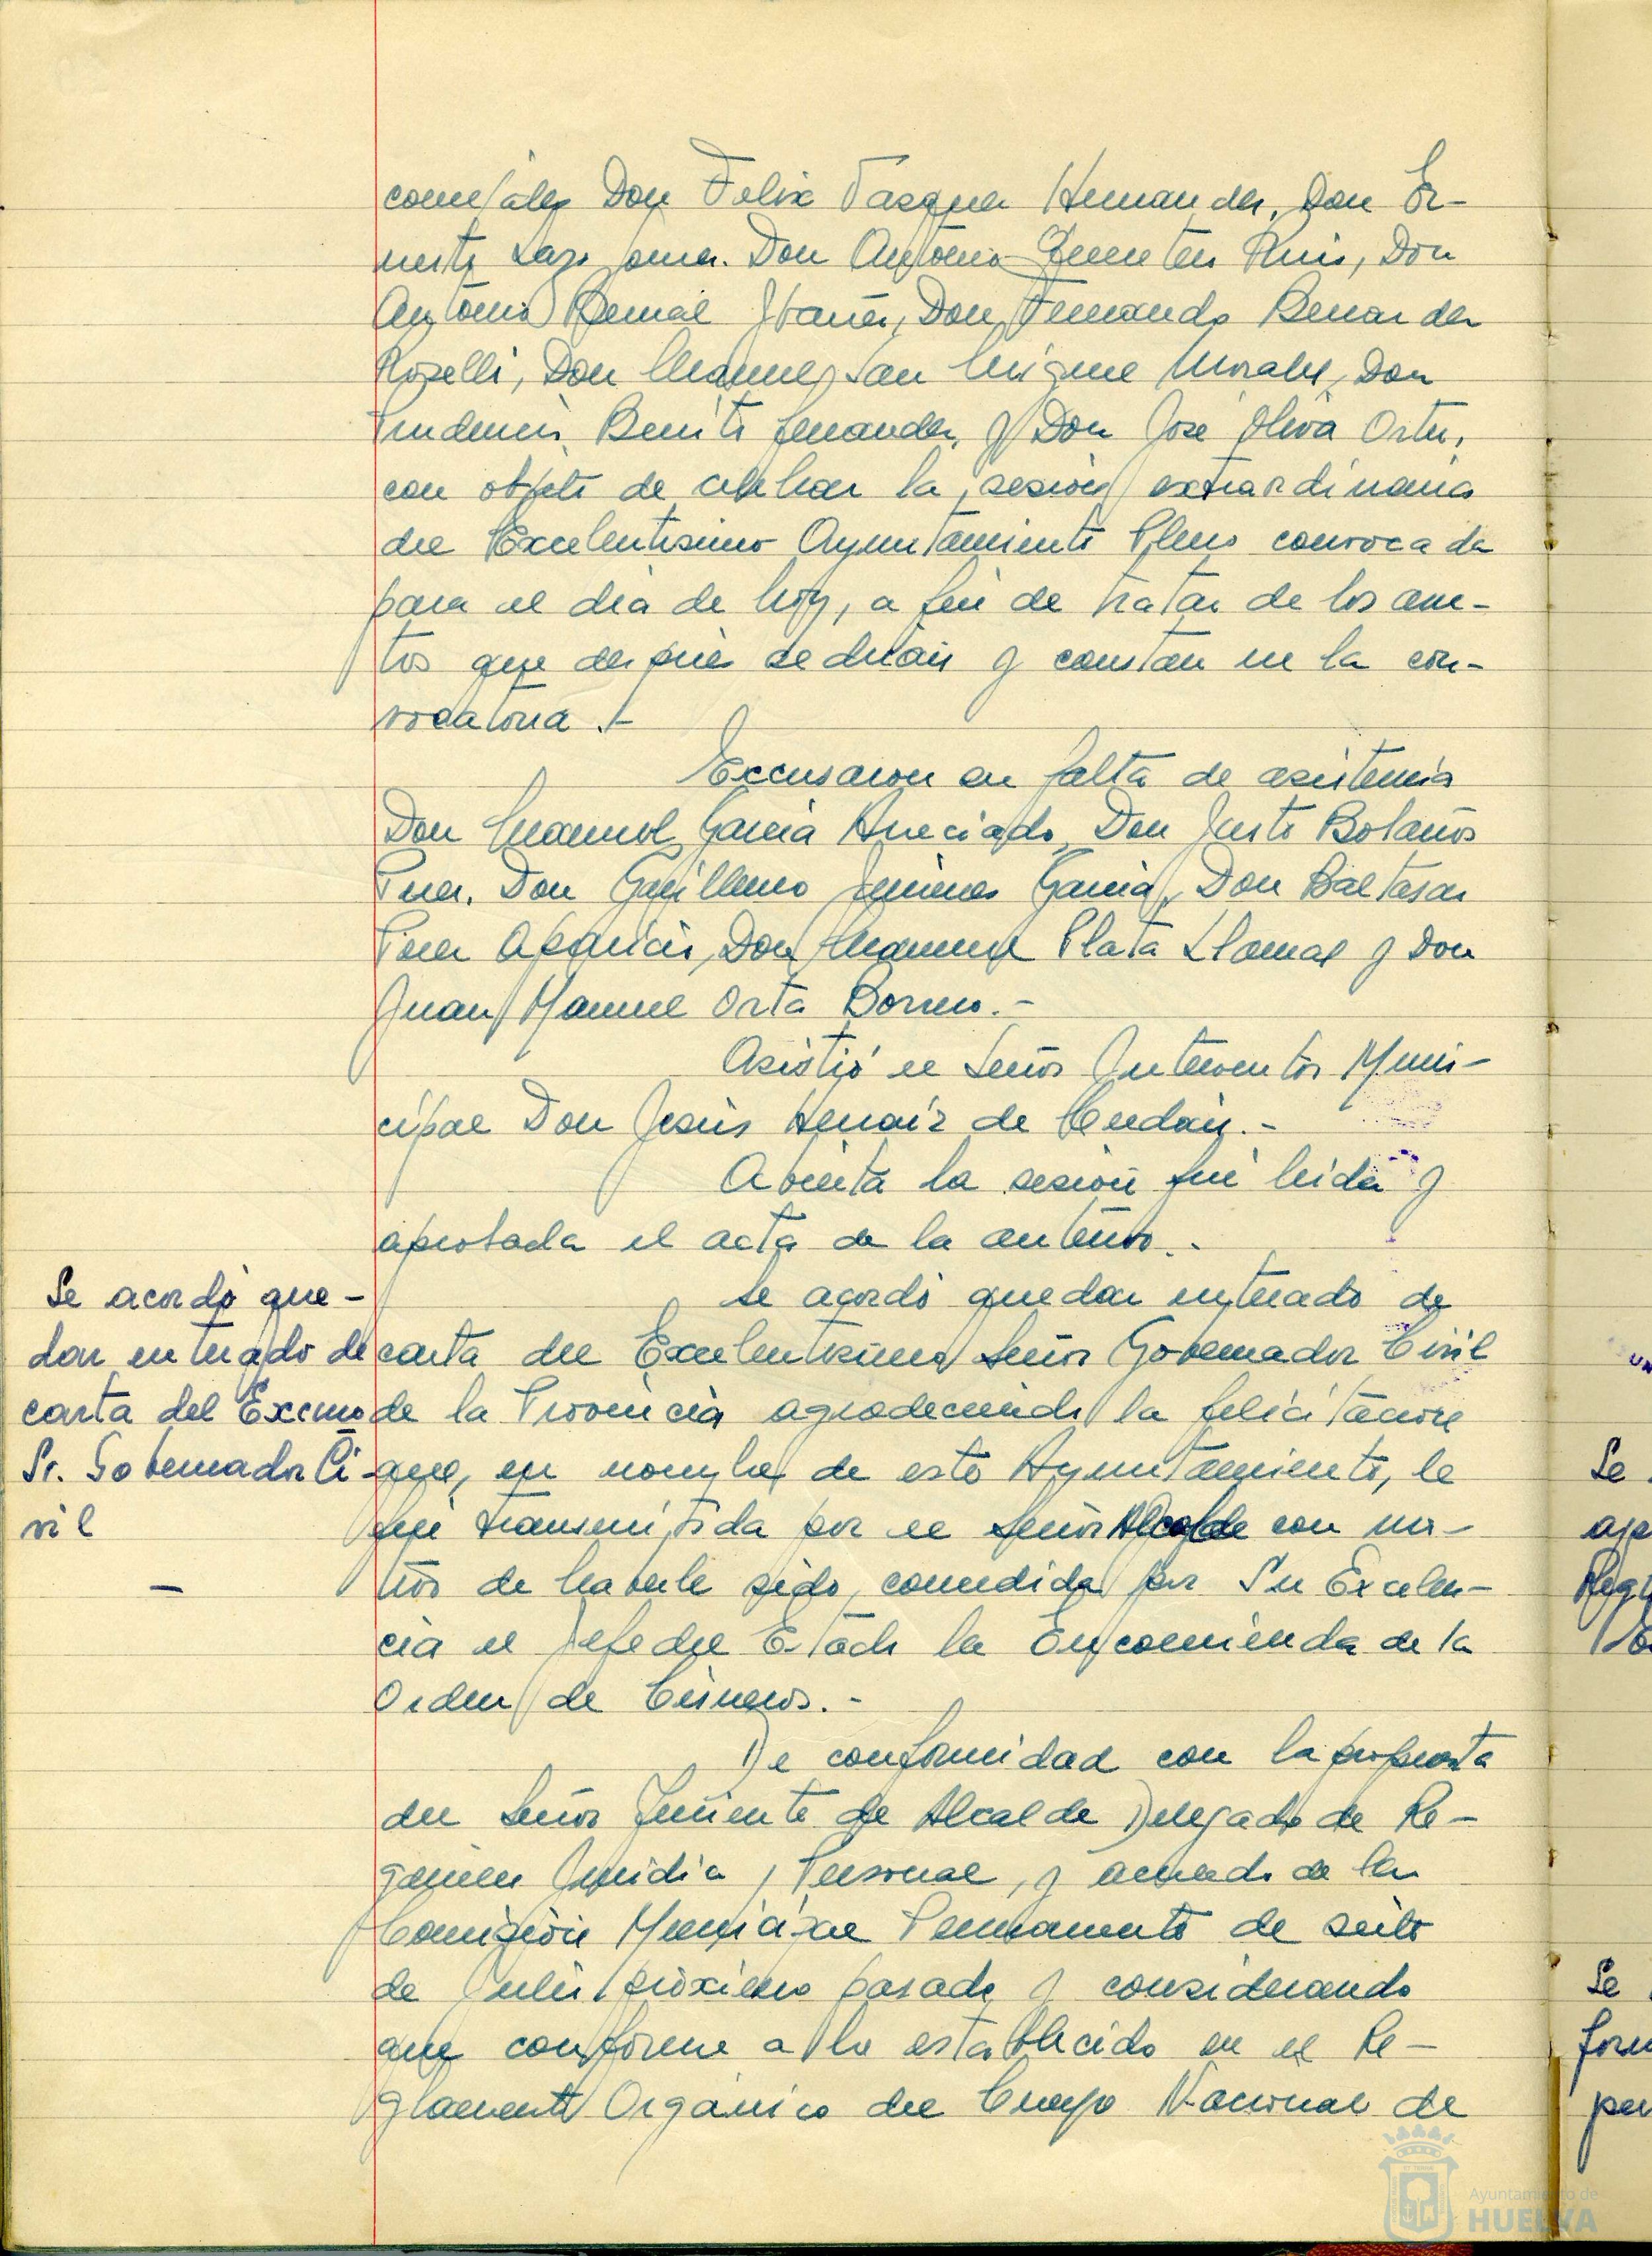 concejales Don Felix Vazquez Hernandez, Don Er-
nesto Lazo Gomez. Don Antonio Ruiz, Don
Antonio Bernal Ibañez, Don Fernando
Rozelli, Don Manuel San Miguel Morales, Don
Prudencio Benito Fernandez, y Don José Oliva Ortiz,
con objeto de celebrar la sesión extraordinaria
del Excelentisimo Ayuntamiento Pleno convocada
para el dia de hoy, a fin de tratar de los asun-
tos que después se dirán y constan en la con-
vocatoria.-
Excusaron su falta de asistencia
Don Manuel Garcia Don Justo Bolaños
Perez. Don Guillermo Jimenez Garcia, Don Baltasar
Perez Aparicio, Don Manuel Plata Llamas y Don
Juan Manuel Orta Borrero.-
Asistió el Señor Interventor Muni-
cipal Don Jesús Hernaiz de
Abierta la sesión fué leida y
aprobada el acta de la anterior.-
Se acordó que-
dar enterado de
carta del Excmo
Sr. Gobernador Ci-
vil
—
Se acordó quedar enterado de
carta del Excelentisimo Señor Gobernador Civil
de la Provincia agradeciendo la felicitación
que, en nombre de este Ayuntamiento, le
fué transmitida por el Señor Alcalde con mo-
tivo de haberle sido concedida por Su Excelen-
cia el Jefe del Estado la Encomienda de la
Orden de Cisneros.-
De conformidad con la propuesta
del Señor Teniente de Alcalde Delegado de Re-
gimen Juridico y Personal, y acuerdo de la
Comisión Municipal Permanente de seite
de Julio próximo pasado y considerando
que conforme a lo establecido en el Re-
glamento Orgánico del Cuerpo Nacional de
Se
Se
form
per
Ayuntamiento de
HUELVA